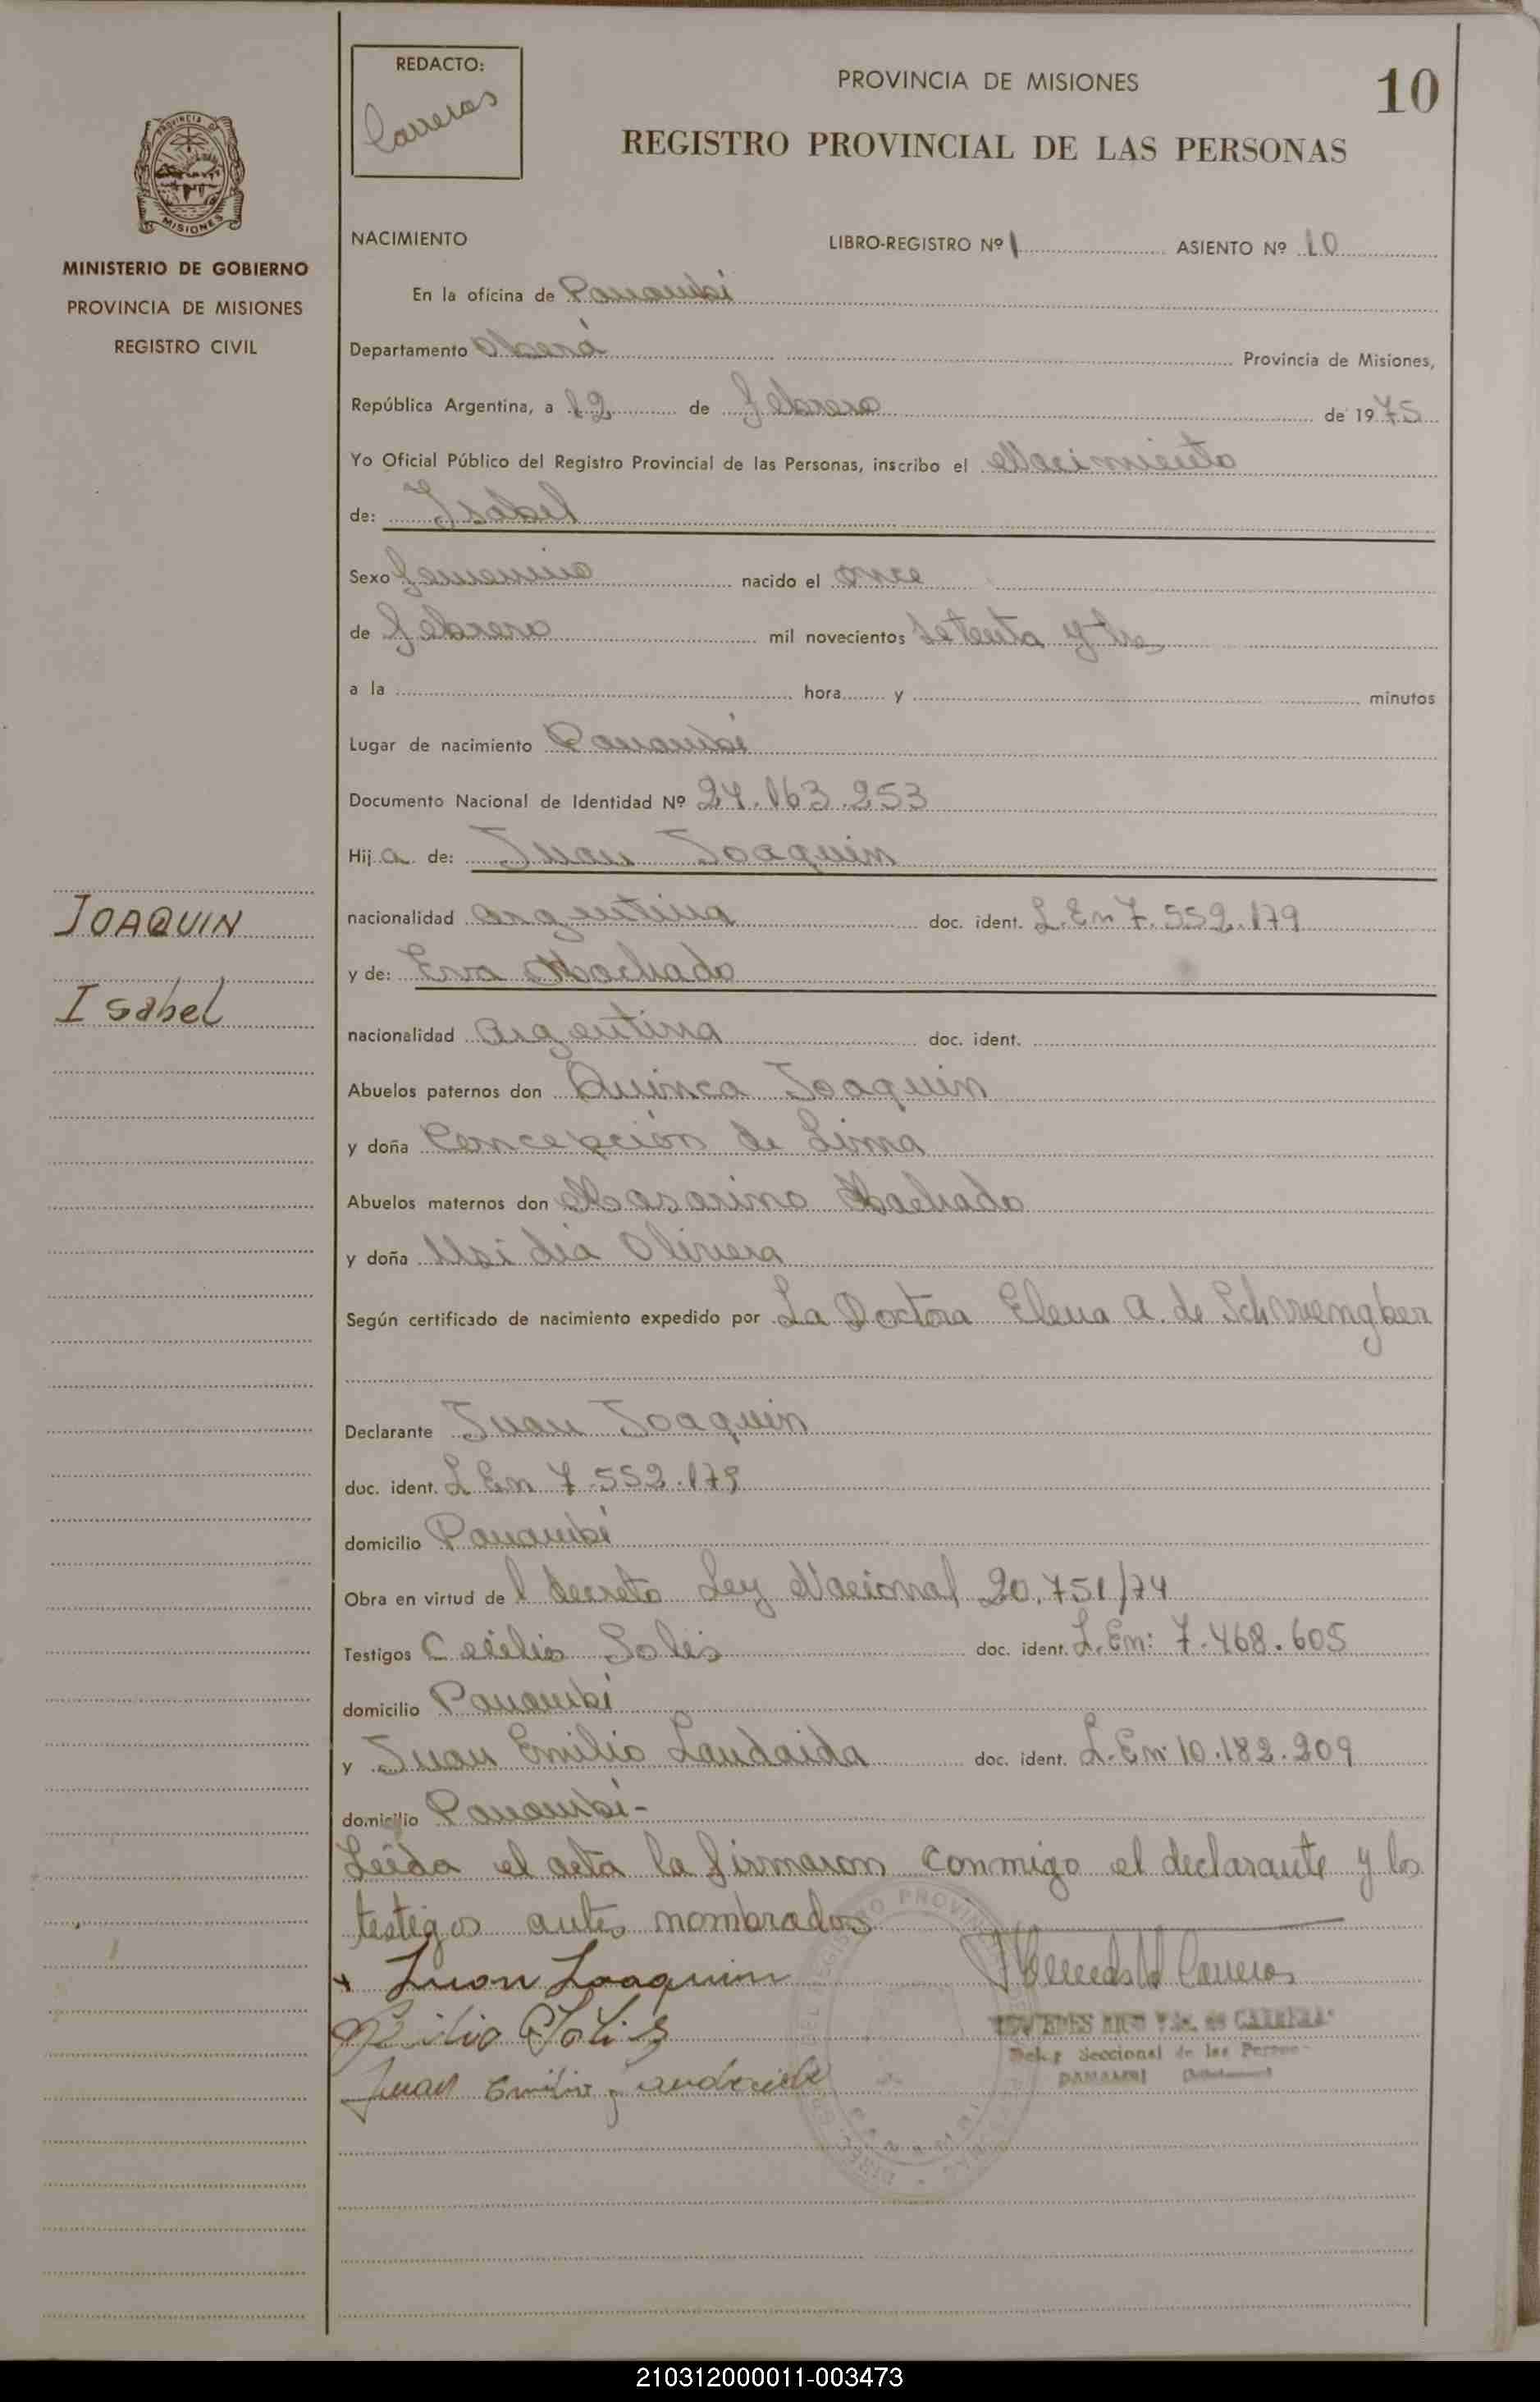 REDACTO:
Carreras
PROVINCIA DE MISIONES
10
REGISTRO PROVINCIAL DE LAS PERSONAS
PROVINCIA DE
MISIONES
MINISTERIO DE GOBIERNO
PROVINCIA DE MISIONES
REGISTRO CIVIL
NACIMIENTO LIBRO-REGISTRO Nº 1 ASIENTO Nº 10
En la oficina de Panambí
Departamento Oberá Provincia de Misiones,
República Argentina, a 12 de febrero de 1975
Yo Oficial Público del Registro Provincial de las Personas, inscribo el Nacimiento
de: Isabel
Sexo femenino nacido el once
de febrero mil novecientos setenta y tres
a la hora y minutos
Lugar de nacimiento Panambí
Documento Nacional de Identidad Nº 24.163.253
Hija de: Juan Joaquin
JOAQUIN
Isabel
nacionalidad argentina doc. ident. L.En 7.552.179
y de: Eva Machado
nacionalidad argentina doc. ident.
Abuelos paternos don Quinca Joaquin
y doña Concepción de Lima
Abuelos maternos don Masarino Machado
y doña Olivera
Según certificado de nacimiento expedido por La Doctora Elena A. de Schwengber
Declarante Juan Joaquin
doc. ident. L.En 7.552.179
domicilio Panambí
Obra en virtud del decreto Ley Nacional 20.751/74
Testigos Cecilio Solis doc. ident. L.En: 7.468.605
domicilio Panambí
y Juan Emilio Landaida doc. ident. L.En: 10.182.209
domicilio Panambí-
Leída el acta la firmaron conmigo el declarante y los
testigos antes nombrados
x Juan Joaquin
Mercedes Carreras
Solis
Juan Emilio
CARRERAS
Seccional de las Personas
PANAMBI
210312000011-003473